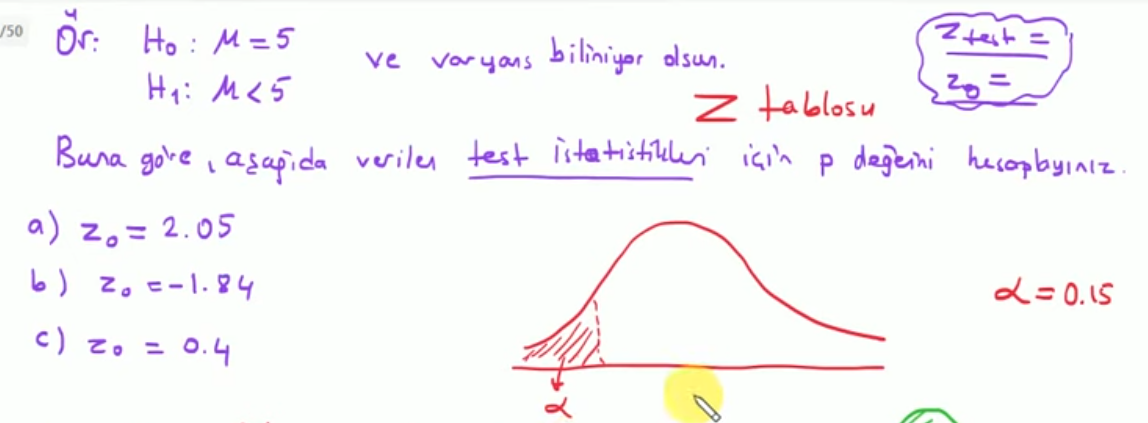 /50
Ör: H₀ : μ = 5
ve varyans biliniyor olsun.
H₁: μ < 5
Z test =
z₀ =
Z tablosu
Buna göre, aşağıda verilen test istatistikleri için p değerini hesaplayınız.
a) z₀ = 2.05
b) z₀ = -1.84
c) z₀ = 0.4
α = 0.15
α